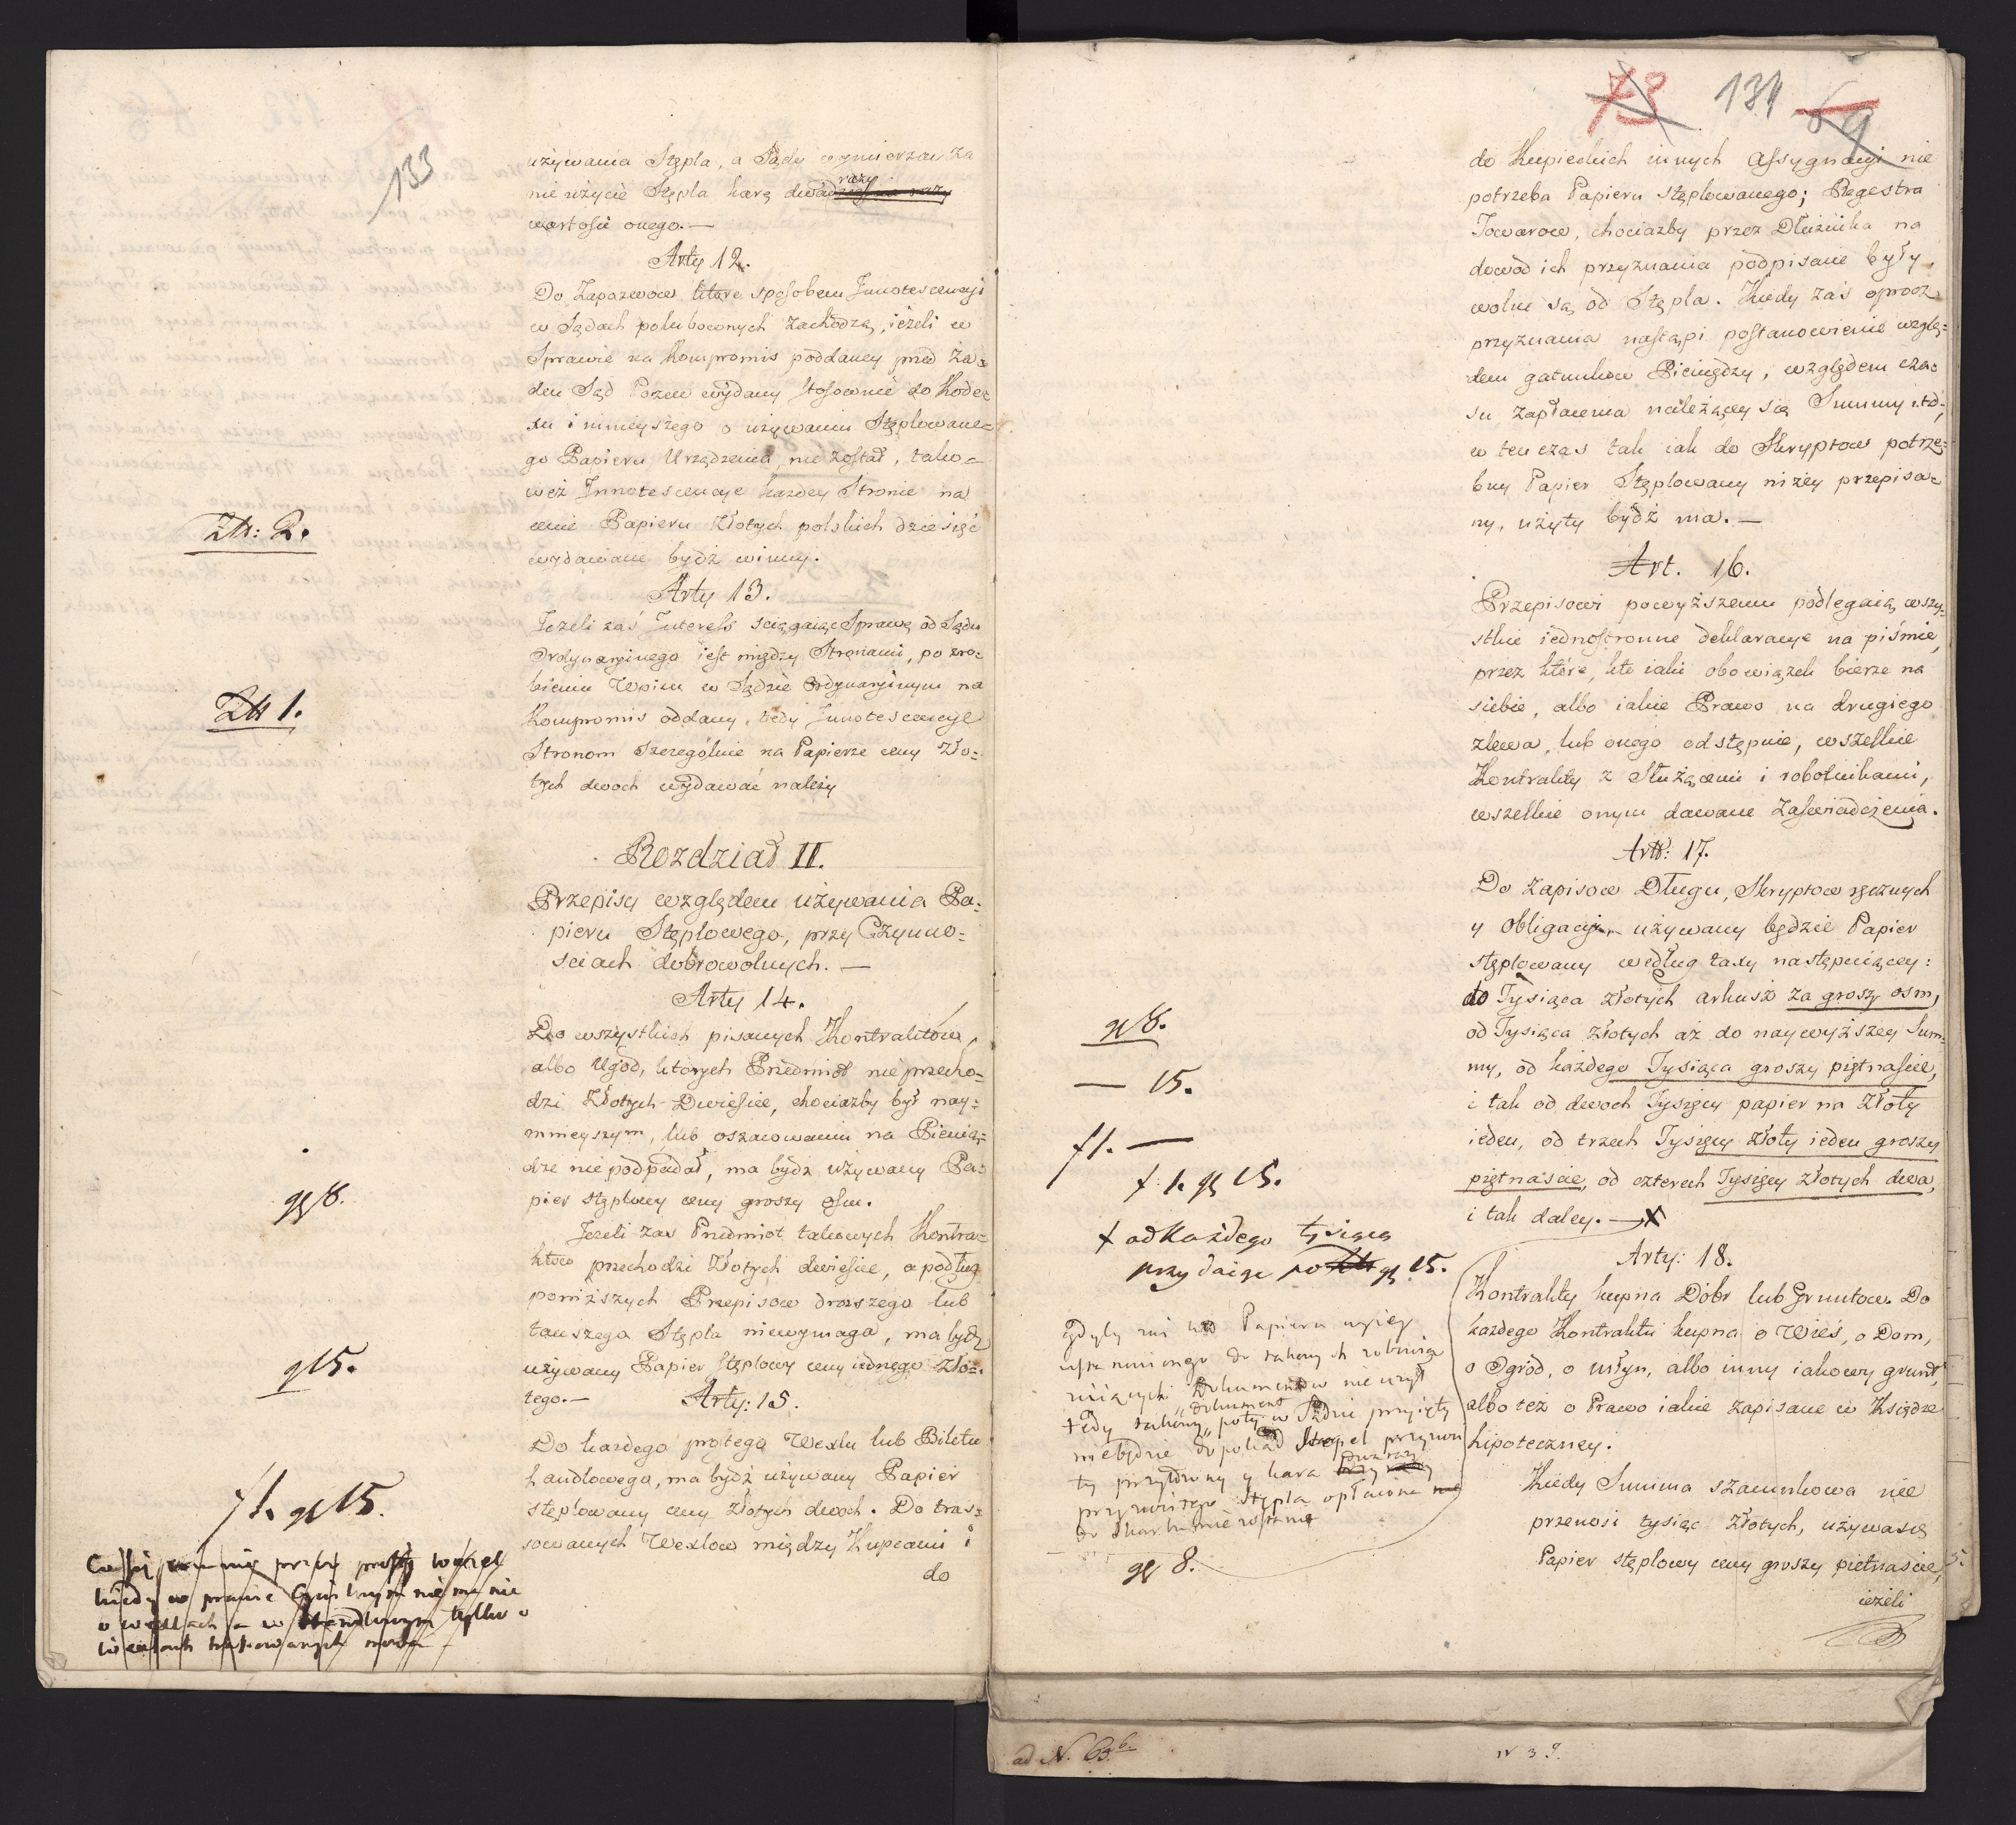 133
używania Stępla, a Sądy wymierzać za
nie użycie Stępla karę dwa razy
wartości onego.—
Arty 12.
Do Zapozwow które sposobem Innotescencyi
w Sądach polubownych zachodzą, ieżeli w
Sprawie na kompromis poddaney przed ża=
den Sąd Pozew wydany stosownie do Kode=
xu i ninieyszego o używaniu Stęplowane=
go Papieru Urządzenia, nie został, tako=
weż Innotescencye każdey Stronie na
cenie Papieru Złotych polskich dziesięć
wydawane bydź winny.
Zł: 2.
Arty 13.
Jeżeli zaś Interess sciągaiąc Sprawę od Sądu
Ordynaryinego iest między Stronami, po zro=
bieniu Wpisu w Sądzie Ordynaryinym na
Kompromis oddany, tedy Innotescencye
Stronom szczególnie na Papierze ceny Zło=
tych dwoch wydawać należy
Zł 1.
Rozdział II.
Przepisy względem używania Pa=
pieru Stęplowego, przy Czynno=
sciach dobrowolnych.—
Arty 14.
Do wszystkich pisanych Kontraktów,
albo Ugod, których Przedmiot nie przecho=
dzi Złotych Dwieście, chociażby był nay=
mnieyszym, lub oszacowaniu na Pienią=
dze nie podpadał, ma bydź używany Pa=
pier stęplowy ceny groszy osm.
gr 8.
Jeżeli zaś Przedmiot takowych Kontra=
ktow przechodzi Złotych dwieście, a podług
poniższych Przepisow droższego lub
tańszego Stępla niewymaga, ma bydź
używany Papier stęplowy ceny iednego Zło=
tego.—
g 15.
Arty: 15.
Do każdego prostego Wexlu lub Biletu
handlowego, ma bydź używany Papier
stęplowany ceny Złotych dwoch. Do tras=
sowanych Wexlow między Kupcami i
do
f 1. gr 15.
kiedy w prawie Cywilnym nie ma nic
o wexlach a w Handlowym tylko o
73 134 69
do Kupieckich innych Assygnacyi nie
potrzeba Papieru stęplowanego; Regestra
Towarow, chociażby przez Dłużnika na
dowod ich przyznania podpisane były,
wolne są od Stępla. Kiedy zaś oprocz
przyznania nastąpi postanowienie wzglę=
dem gatunkow Pieniędzy, względem cza=
su zapłacenia należącey się Summy i.t.d.
w ten czas tak iak do Skryptow potrze=
bny Papier Stęplowany niżey przepisa=
ny, użyty bydź ma.—
Art. 16.
Przepisowi powyższemu podlegaią wszy=
stkie iednostronne deklaracye na piśmie,
przez które, kto iaki obowiązek bierze na
siebie, albo iakie Prawo na drugiego
zlewa, lub onego odstępuie, wszelkie
Kontrakty z Służącemi i robotnikami,
wszelkie onym dawane Zaświadczenia.
Art: 17.
Do Zapisow Długu, Skryptow ręcznych
y Obligacyi używany będzie Papier
stęplowany według taxy następuiącey:
do Tysiąca złotych arkusz za groszy osm,
od Tysiąca złotych aż do naywyższey Sum=
my, od każdego Tysiąca groszy piętnaście,
i tak od dwoch Tysięcy papier na Złoty
ieden, od trzech Tysięcy złoty ieden groszy
piętnaście, od czterech Tysięcy złotych dwa,
i tak daley.— X
gr 8.
— 15.
f 1. —
f. 1. gr 15.
X od każdego tysiąca
przydaiąc po gr 15.
Arty: 18.
Kontrakty kupna Dóbr lub Gruntow. Do
każdego Kontraktu kupna o Wieś, o Dom,
o Ogród, o młyn, albo inny iakowy grunt,
albo też o Prawo iakie zapisane w Księdze
hipoteczney.
Kiedy Summa szacunkowa nie
przenosi tysiąc złotych, używa się
Papier stęplowy ceny groszy piętnaście,
ieżeli
gdyby zaś kto Papieru wyżey
do takowych
Dokumentow nie użył
tedy takowy dokument poty w Sądzie przyięty
niebędzie dopokąd Stępel
y kara
Stępla opłacona
gr 8.
ad N. 63 b.
N 39.